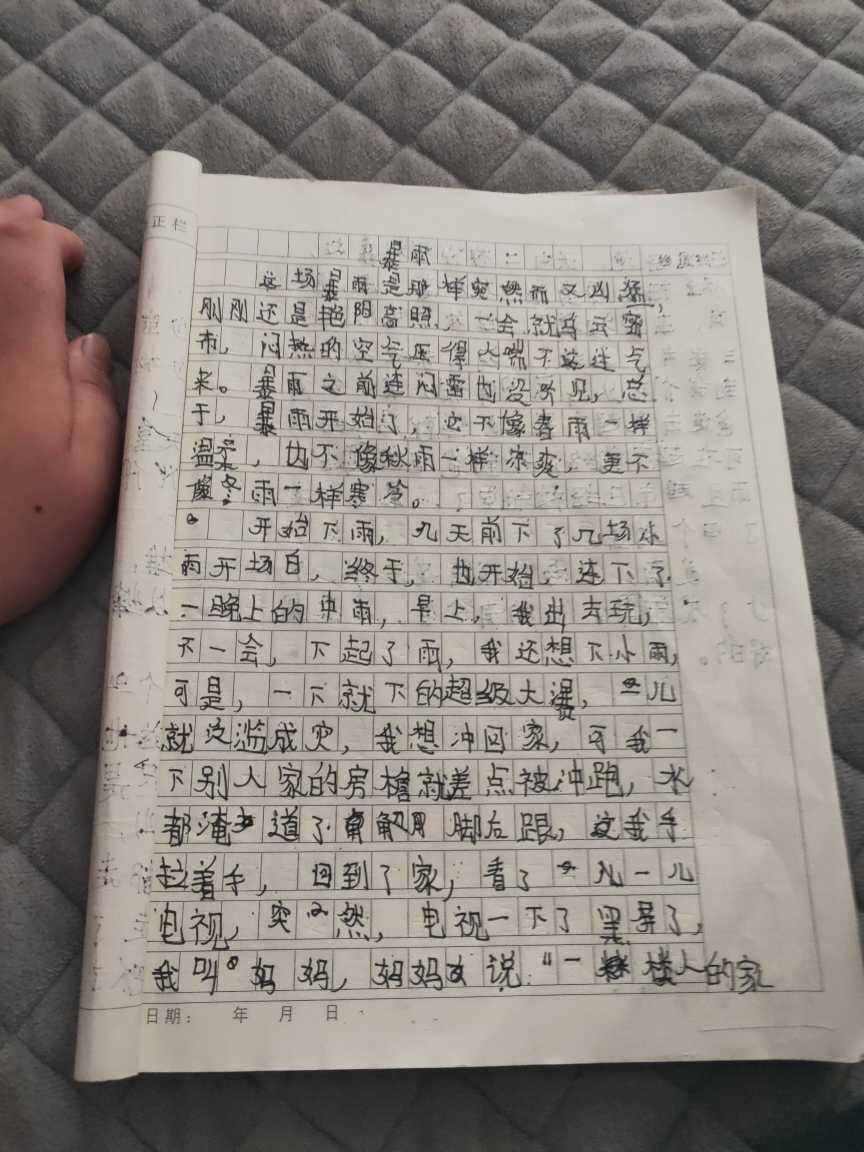 正栏
暴雨
这场暴雨是那样突然而又凶猛,
刚刚还是艳阳高照,一会就乌云密
布,闷热的空气压得人喘不过气
来。暴雨之前连闷雷也没听见,总
于,暴雨开始了,它不像春雨一样
温柔,也不像秋雨一样凉爽,更不
像冬雨一样寒冷。
开始下雨,九天前下了几场小
雨开场白,终于,也开始,连下了
一晚上的中雨,早上,我出去玩,
不一会,下起了雨,我还想下小雨,
可是,一下就下的超级大瀑,一儿
就泛滥成灾,我想冲回家,可我一
下别人家的房檐就差点被冲跑,水
都淹道了脚后跟,我手
拉着手,回到了家,看了一儿一儿
电视,突然,电视一下了黑屏了,
我叫妈妈,妈妈说:“一楼人的家
日期: 年 月 日